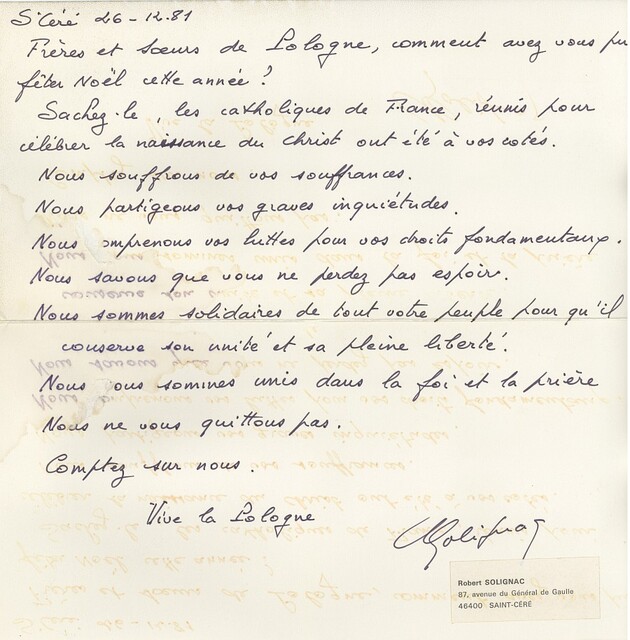 St Céré 26-12.81
Frères et sœurs de Pologne, comment avez vous pu
fêter Noël cette année ?
Sachez-le, les catholiques de France, réunis pour
célébrer la naissance du Christ ont été à vos cotés.
Nous souffrons de vos souffrances.
Nous partageons vos graves inquiétudes.
Nous omprenons vos luttes pour vos droits fondamentaux.
Nous savons que vous ne perdez pas espoir.
Nous sommes solidaires de tout votre peuple pour qu'il
conserve son unité et sa pleine liberté.
Nous ous sommes unis dans la foi et la prière
Nous ne vous quittons pas.
Comptez sur nous.
Vive la Pologne
Solignac
Robert SOLIGNAC
87, avenue du Général de Gaulle
46400 SAINT-CÉRÉ